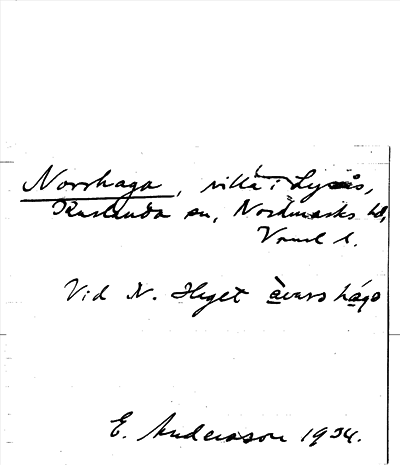 Norrhaga, villa i Lysås,
Karlanda sn, Nordmarks hd,
Vrml l.
Vid N. Heget
E. Andersson 1934.